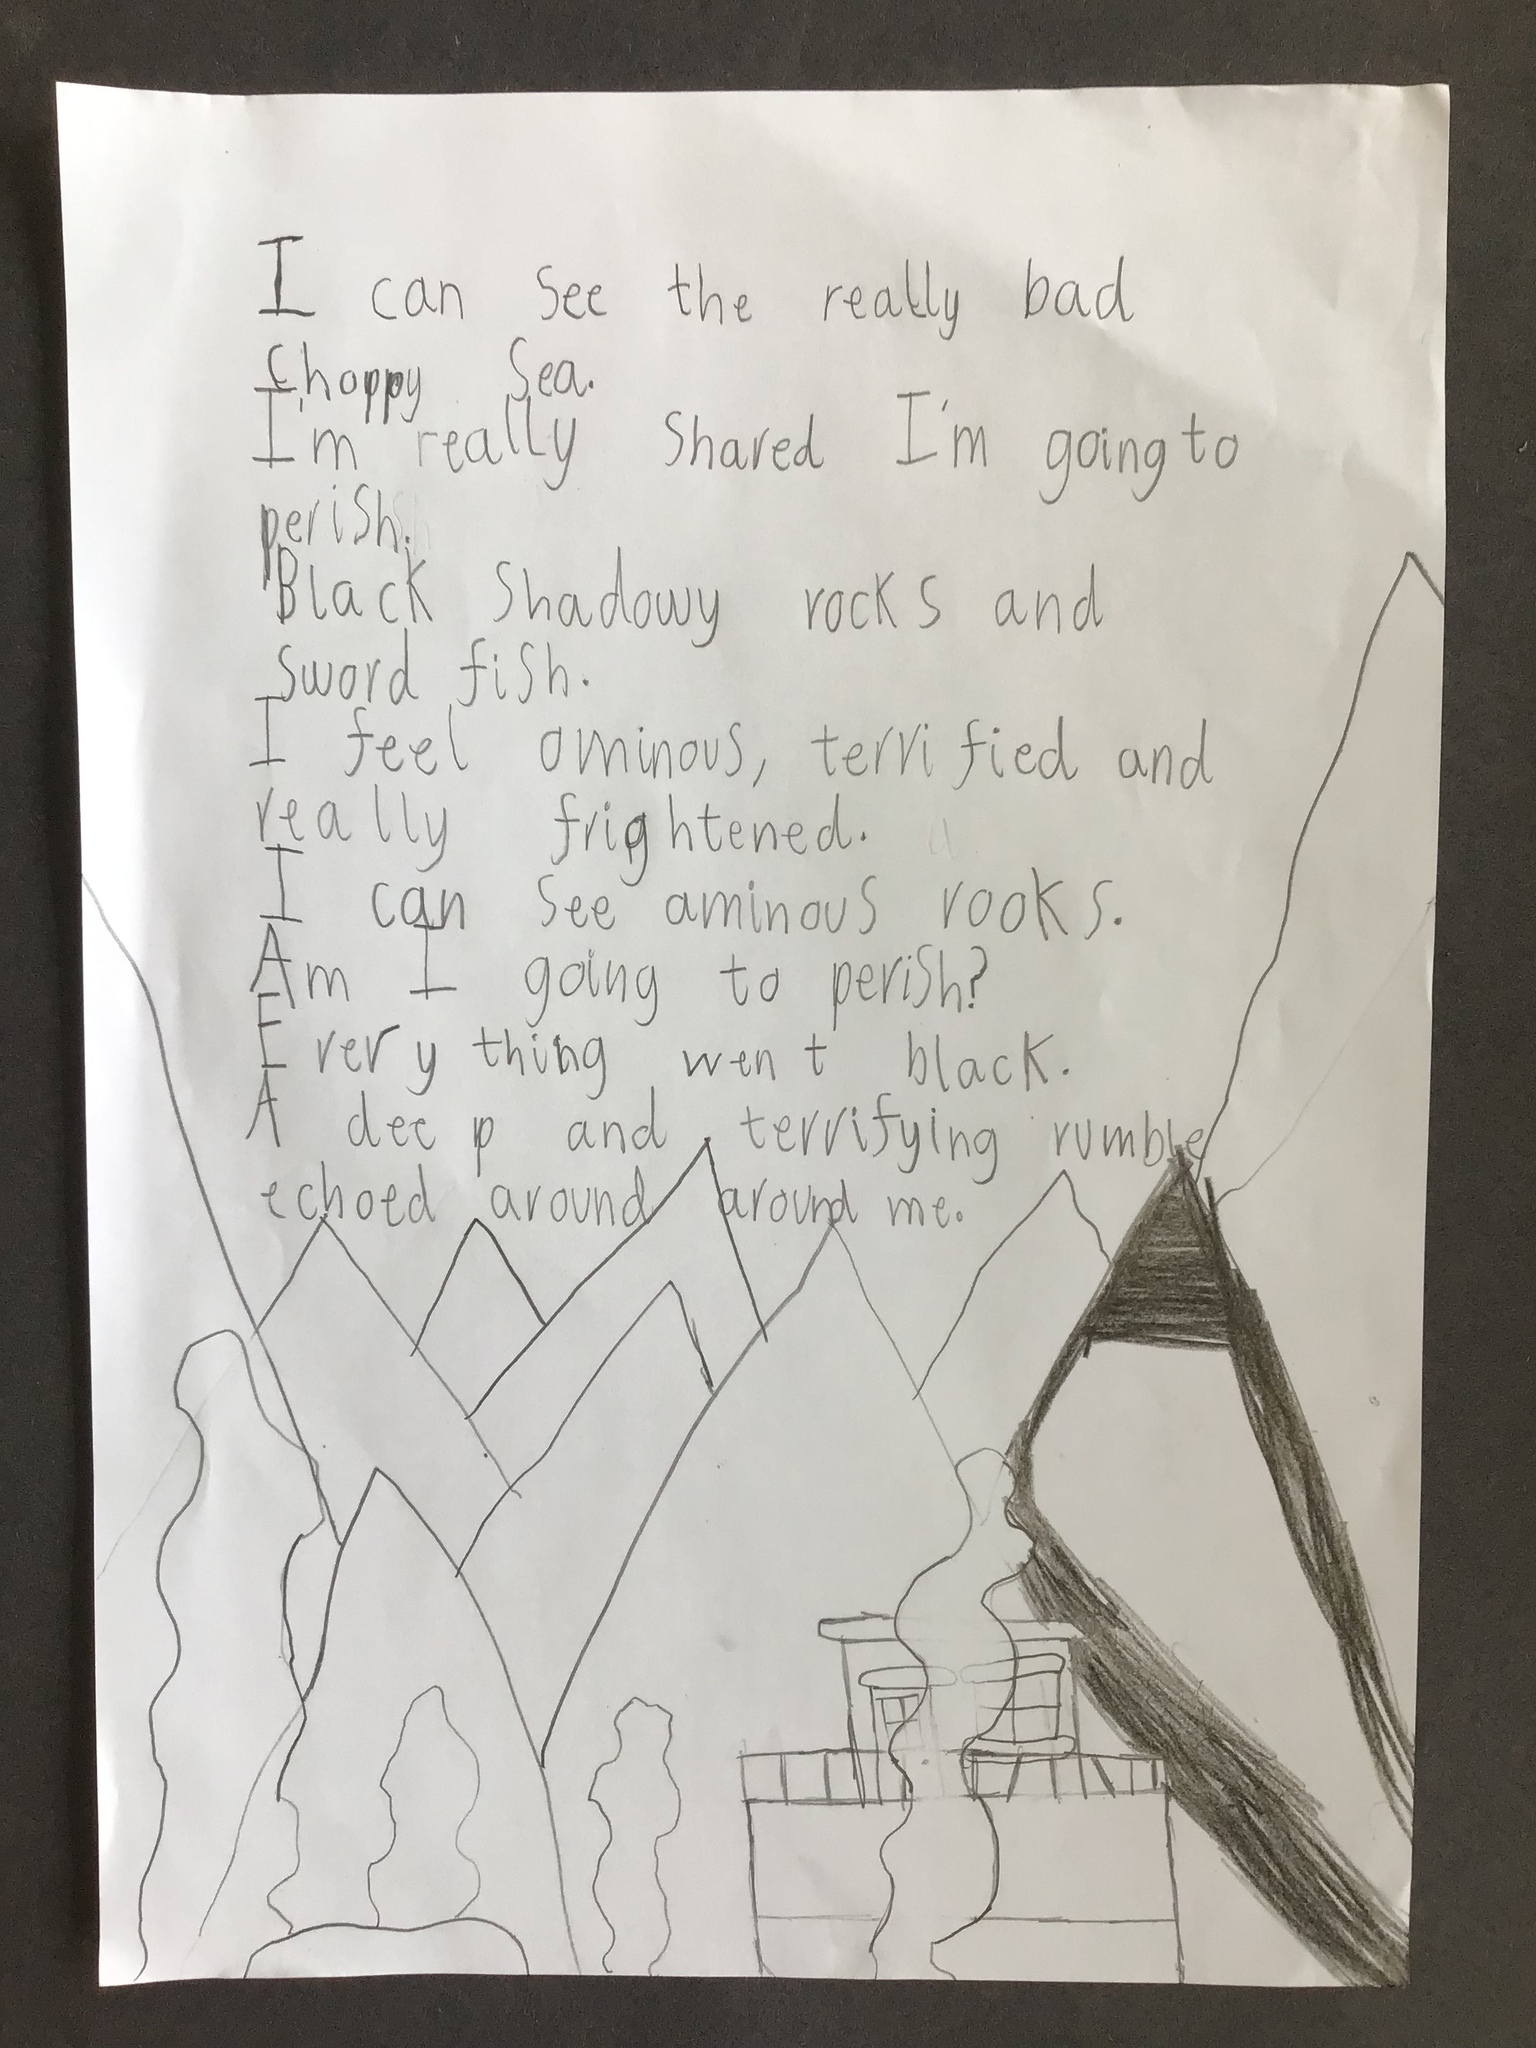 I can see the really bad
choppy sea.
I'm really shared I'm going to
perish.
Black shadowy rocks and
sword fish.
I feel ominous, terrified and
really frightened.
I can see aminous rooks.
Am I going to perish?
Every thing went black.
A deep and terrifying rumble
echoed around around me.